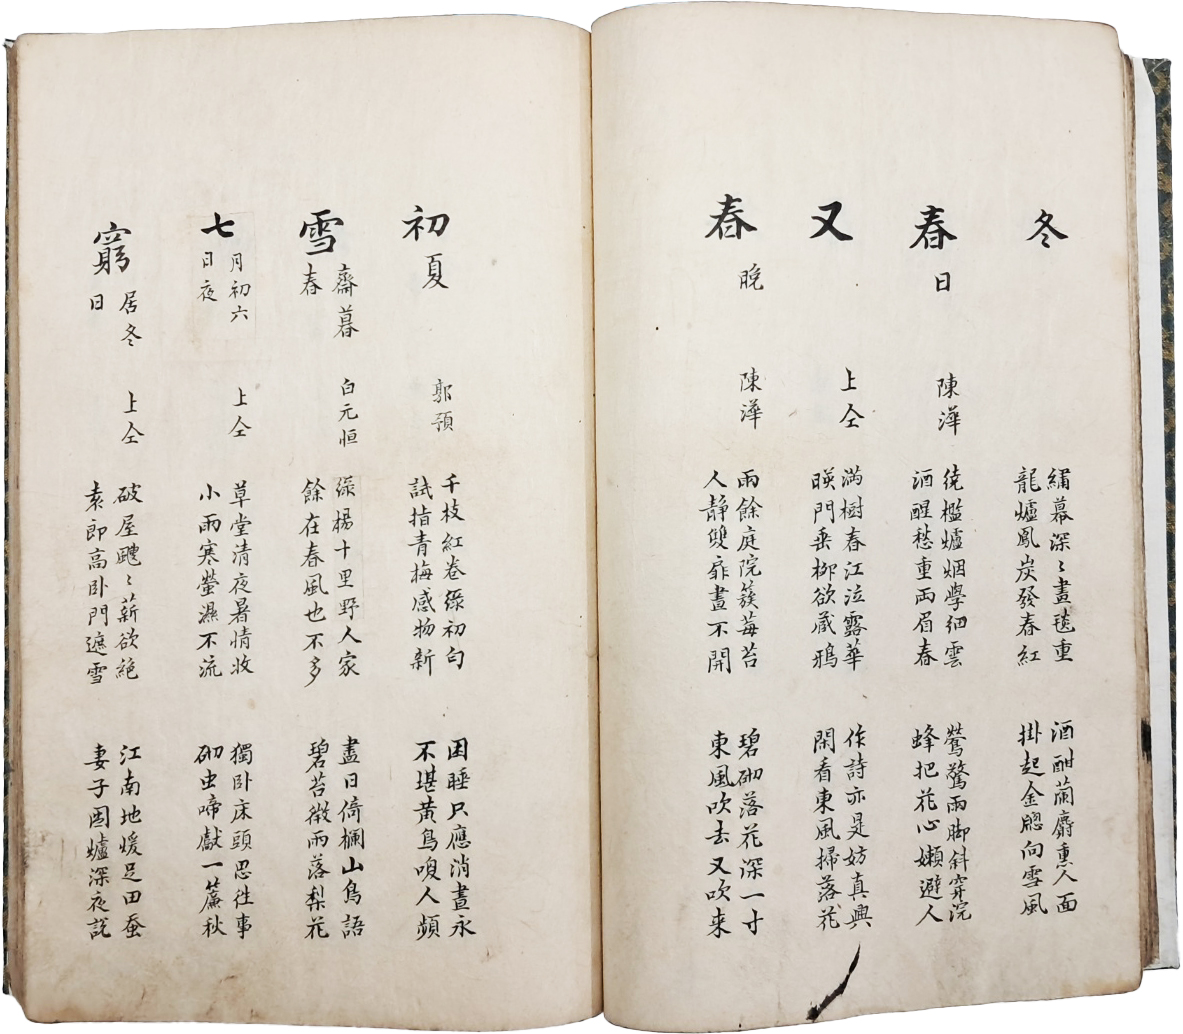 冬
繡幕深〻畫毯重
龍爐鳳炭發春紅
酒酣蘭麝熏人面
掛起金牕向雪風
春日
陳澕
繞檻爐烟學細雲
酒醒愁重兩眉春
鶯驚雨脚斜穿院
蜂把花心嬾避人
又
上仝
滿樹春江泣露華
暎門垂柳欲藏鴉
作詩亦是妨真興
閑看東風掃落花
春晩
陳澕
雨餘庭院簇莓苔
人静雙扉晝不開
碧砌落花深一寸
東風吹去又吹来
初夏
郭預
千枝紅卷綠初匀
試指青梅感物新
困睡只應消晝永
不堪黃鳥喚人頻
雪齋暮春
白元恒
綠楊十里野人家
餘在春風也不多
盡日倚欄山鳥語
碧苔微雨落梨花
七月初六日夜
上仝
草堂清夜暑情收
小雨寒螢濕不流
獨卧床頭思往事
砌虫啼獻一簾秋
窮居冬日
上仝
破屋飀〻薪欲絶
袁郎高卧門遮雪
江南地煖足田蚕
妻子圍爐深夜說